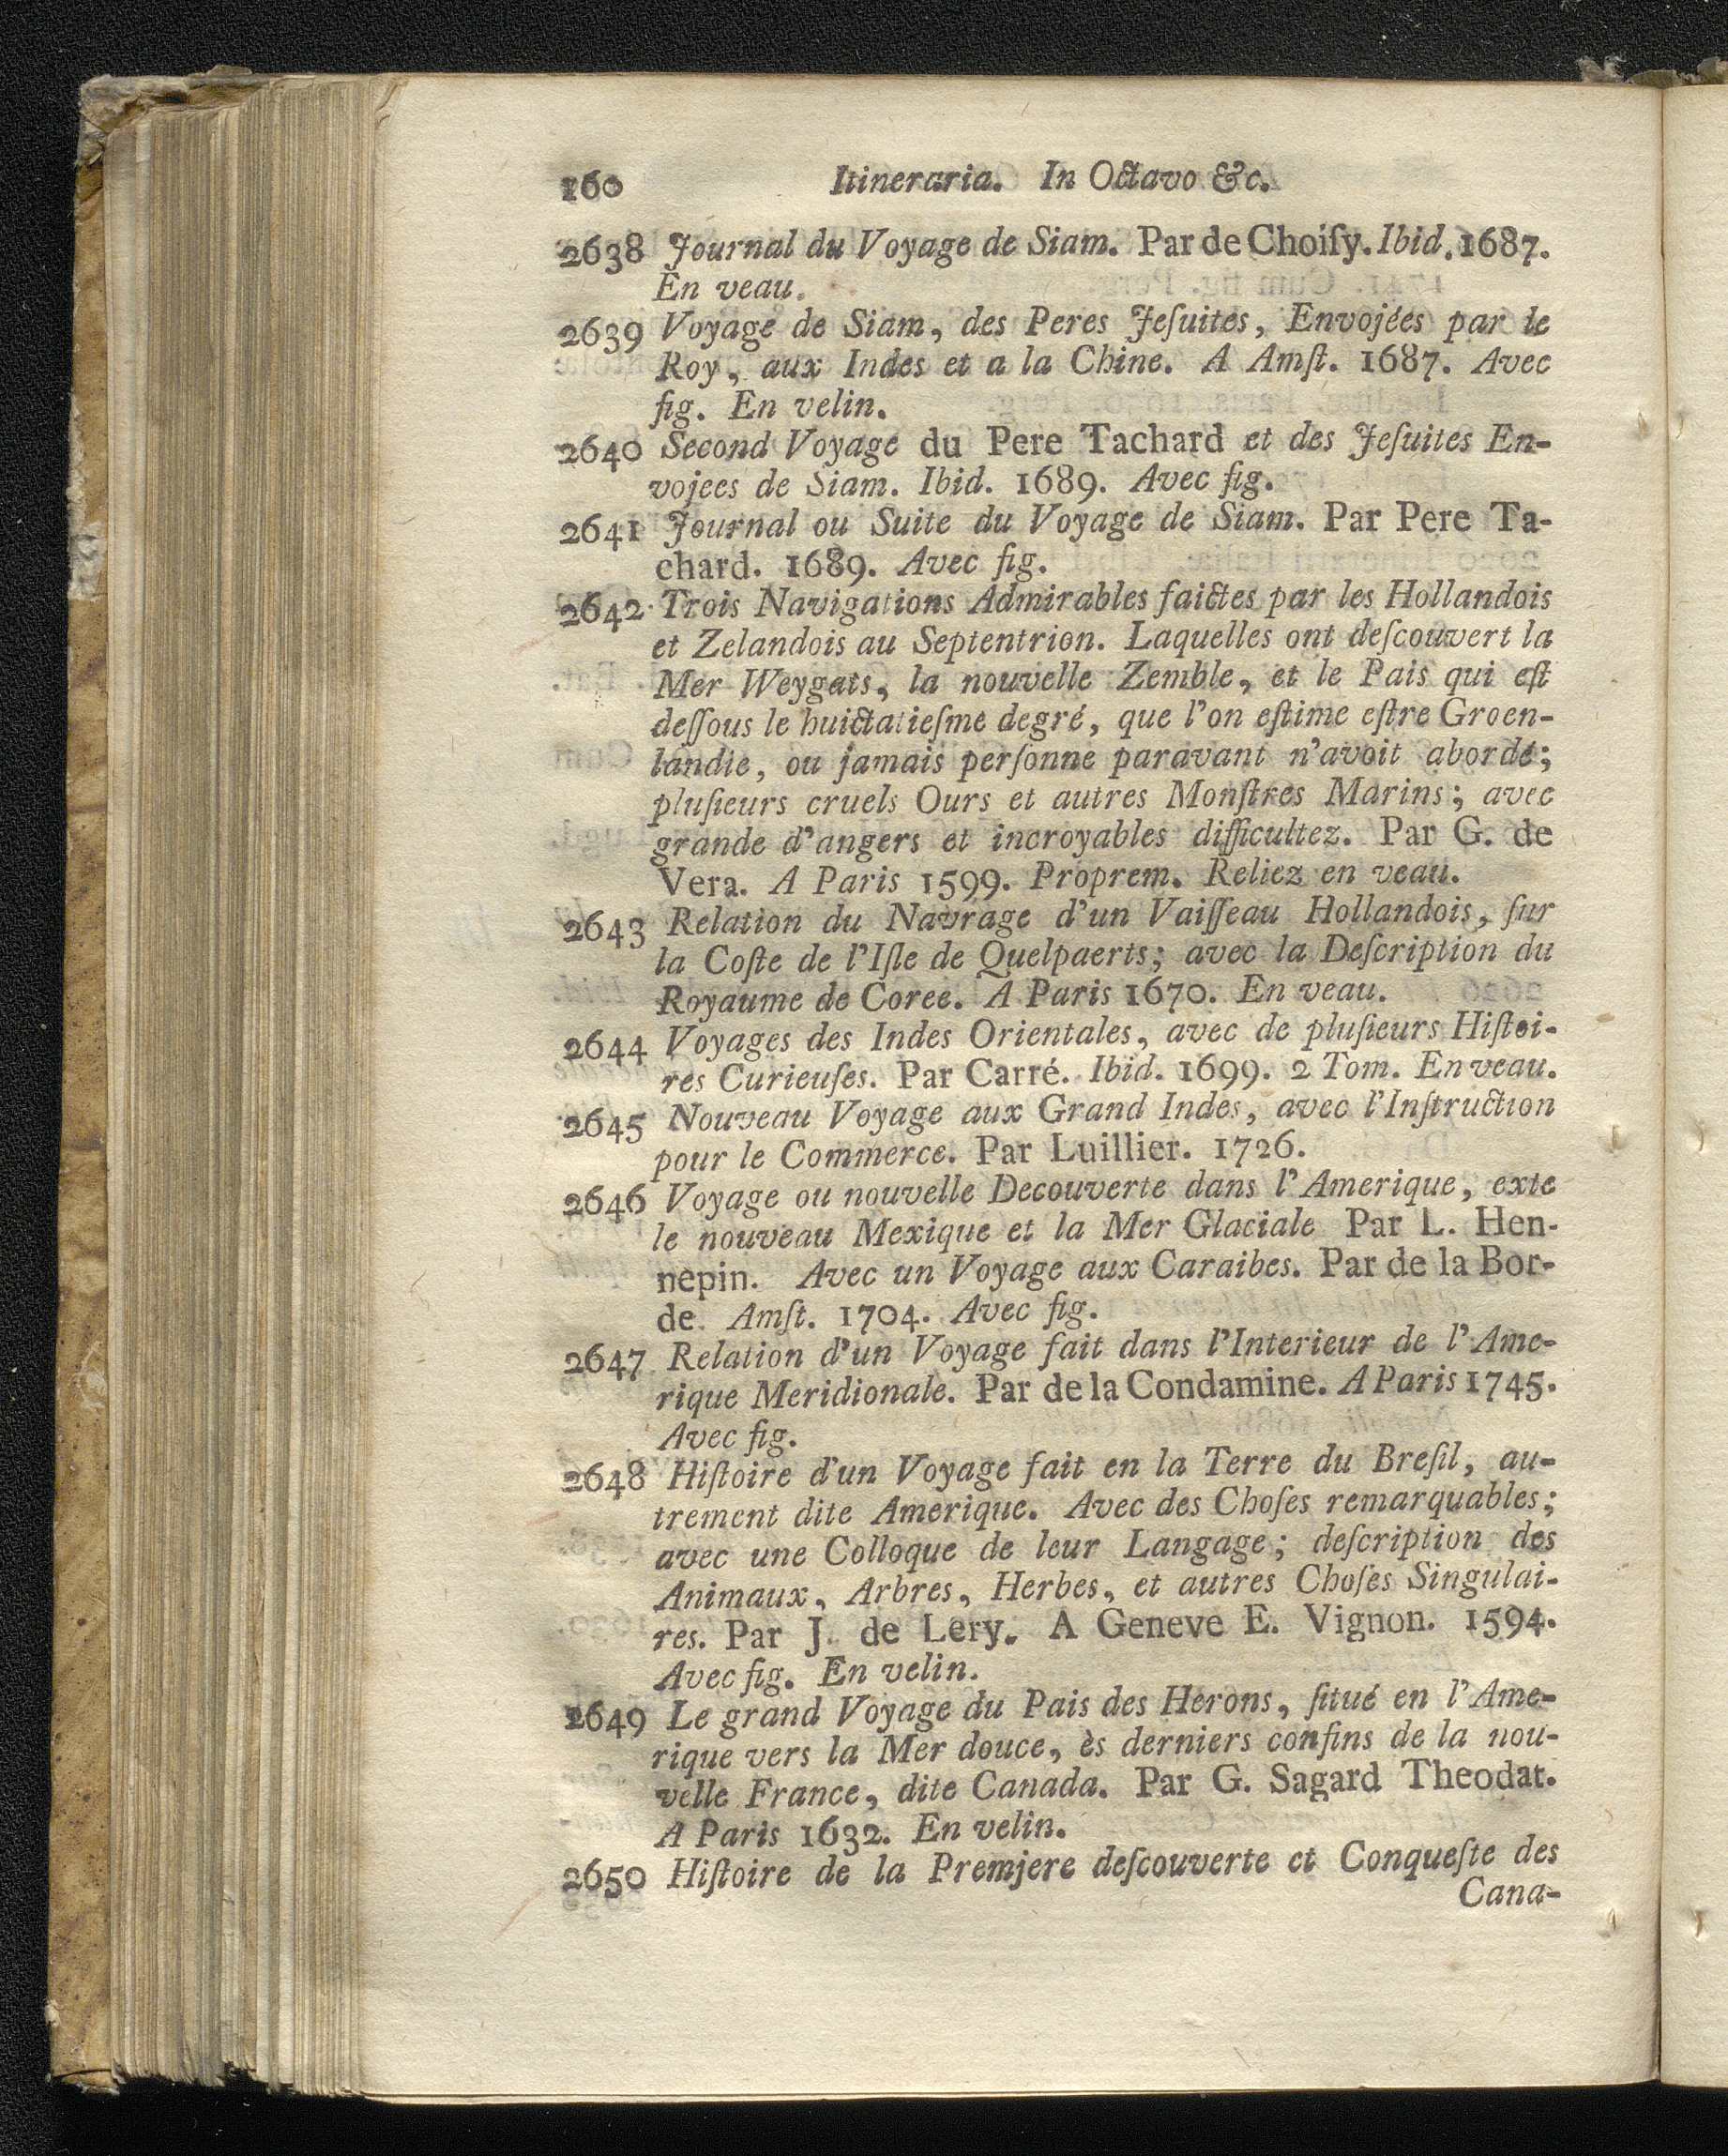 160 Itineraria. In Octavo &c.
2638 Journal du Voyage de Siam. Par de Choiſy. Ibid. 1687.
En veau.
2639 Voyage de Siam, des Peres Jeſuites, Envojées par le
Roy, aux Indes et a la Chine. A Amſt. 1687. Avec
fig. En velin.
2640 Second Voyage du Pere Tachard et des Jeſuites En-
vojees de Siam. Ibid. 1689. Avec fig.
2641 Journal ou Suite du Voyage de Siam. Par Pere Ta-
chard. 1689. Avec fig.
2642 Trois Navigations Admirables faictes par les Hollandois
et Zelandois au Septentrion. Laquelles ont deſcouvert la
Mer Weygats, la nouvelle Zemble, et le Pais qui eſt
deſſous le huictatieſme degré, que l'on eſtime eſtre Groen-
landie, ou jamais perſonne paravant n'avoit abordé;
pluſieurs cruels Ours et autres Monſtres Marins; avec
grande d'angers et incroyables difficultez. Par G. de
Vera. A Paris 1599. Proprem. Reliez en veau.
2643 Relation du Navrage d'un Vaiſſeau Hollandois, ſur
la Coſte de l'Iſle de Quelpaerts; avec la Deſcription du
Royaume de Coree. A Paris 1670. En veau.
2644 Voyages des Indes Orientales, avec de pluſieurs Hiſtoi-
res Curieuſes. Par Carré. Ibid. 1699. 2 Tom. En veau.
2645 Nouveau Voyage aux Grand Indes, avec l'Inſtruction
pour le Commerce. Par Luillier. 1726.
2646 Voyage ou nouvelle Decouverte dans l'Amerique, exte
le nouveau Mexique et la Mer Glaciale Par L. Hen-
nepin. Avec un Voyage aux Caraibes. Par de la Bor-
de. Amſt. 1704. Avec fig.
2647 Relation d'un Voyage fait dans l'Interieur de l'Ame-
rique Meridionale. Par de la Condamine. A Paris 1745.
Avec fig.
2648 Hiſtoire d'un Voyage fait en la Terre du Breſil, au-
trement dite Amerique. Avec des Choſes remarquables;
avec une Colloque de leur Langage; deſcription des
Animaux, Arbres, Herbes, et autres Choſes Singulai-
res. Par J. de Lery. A Geneve E. Vignon. 1594.
Avec fig. En velin.
2649 Le grand Voyage du Pais des Herons, ſitué en l'Ame-
rique vers la Mer douce, ès derniers confins de la nou-
velle France, dite Canada. Par G. Sagard Theodat.
A Paris 1632. En velin.
2650 Hiſtoire de la Premjere deſcouverte et Conqueſte des
Cana-